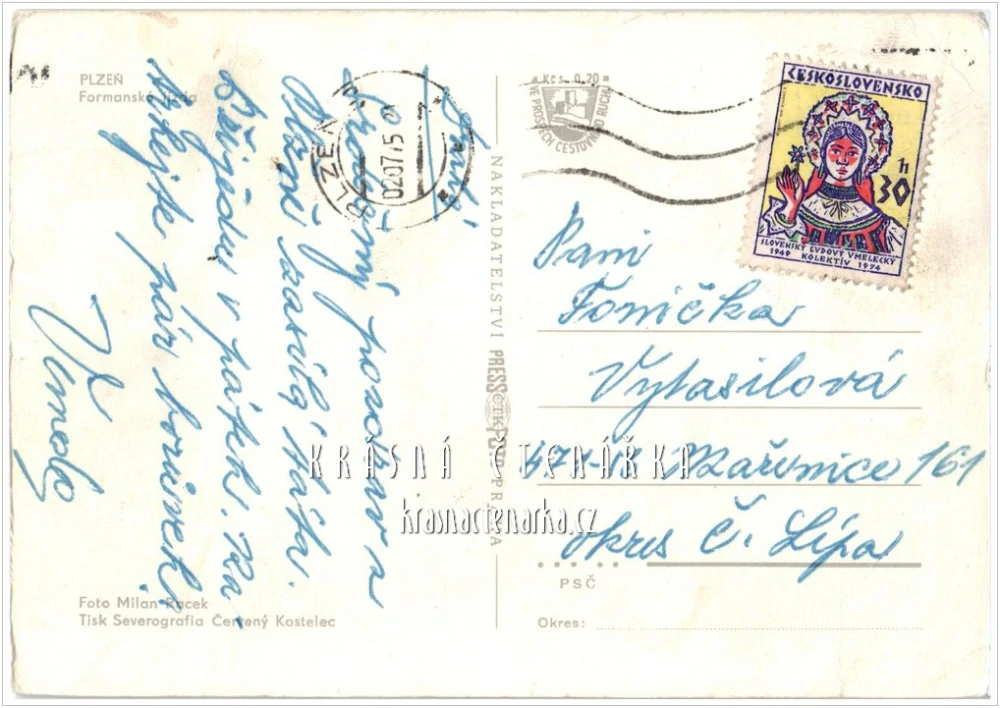 PLZEŇ
Formanská jízda
Milí
Srdečný pozdrav z
Plzně zasílá táta.
Přijedu v pátek. Na-
chlejte pár
PLZEŇ
02.07.75
Kčs 0,20
VE PROSPĚCH CESTOVNÍHO RUCHU
ČESKOSLOVENSKO
30 h
SLOVENSKÝ ĽUDOVÝ UMELECKÝ
1949 KOLEKTÍV 1974
NAKLADATELSTVÍ PRESSFOTO PRAHA
ČTK
Paní
Tonička
Vytasilová
471 Mařenice 161
okres Č. Lípa
PSČ
Okres:
Foto Milan Racek
Tisk Severografia Červený Kostelec
KRÁSNÁ ČTENÁŘKA
krasnactenarka.cz